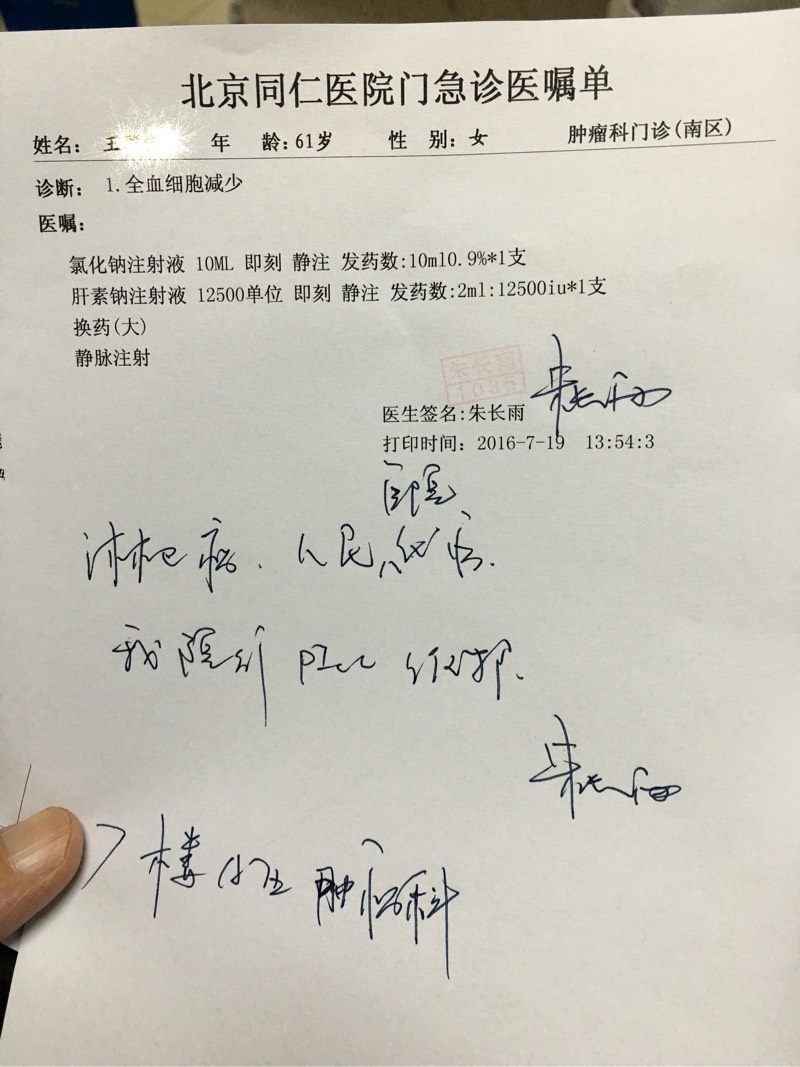 北京同仁医院门急诊医嘱单
姓名: 王 年 龄: 61岁 性 别: 女 肿瘤科门诊(南区)
诊断: 1.全血细胞减少
医嘱:
氯化钠注射液 10ML 即刻 静注 发药数:10ml0.9%*1支
肝素钠注射液 12500单位 即刻 静注 发药数:2ml:12500iu*1支
换药(大)
静脉注射
朱长雨
1086
医生签名:朱长雨 朱长雨
打印时间: 2016-7-19 13:54:3
医嘱
淋巴瘤. 人民
我院行 PICC 维护.
朱长雨
7楼 肿瘤科